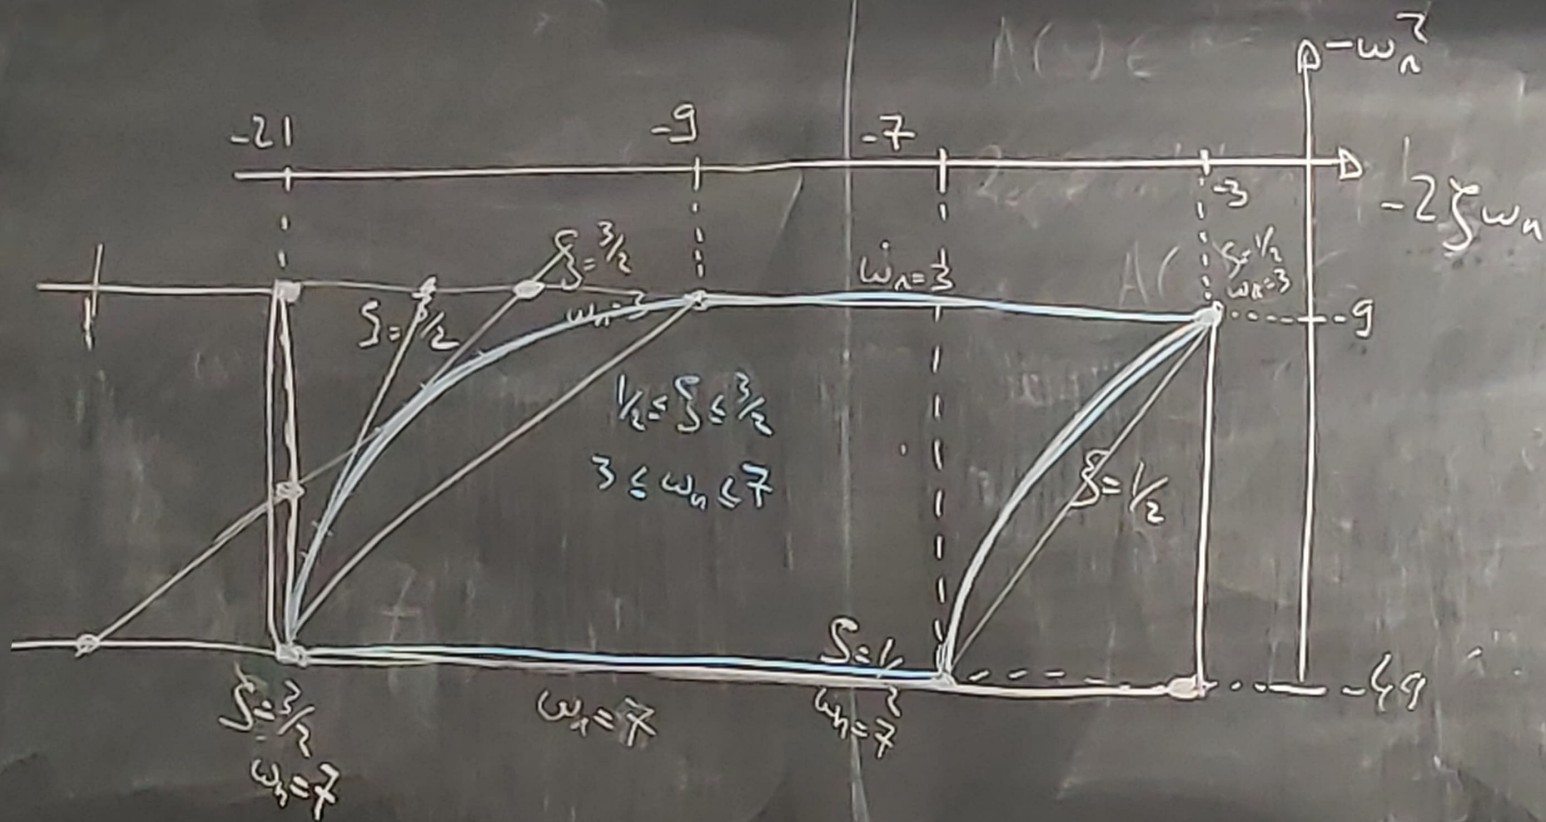 -ωₙ²
-21
-9
-7
-3
-2ζωₙ
ζ=3/2
ωₙ=3
ζ=1/2
ωₙ=3
ζ=3/2
ωₙ=3
-9
1/2≤ζ≤3/2
3≤ωₙ≤7
ζ=1/2
ζ=1/2
ωₙ=7
-49
ζ=3/2
ωₙ=7
ωₙ=7